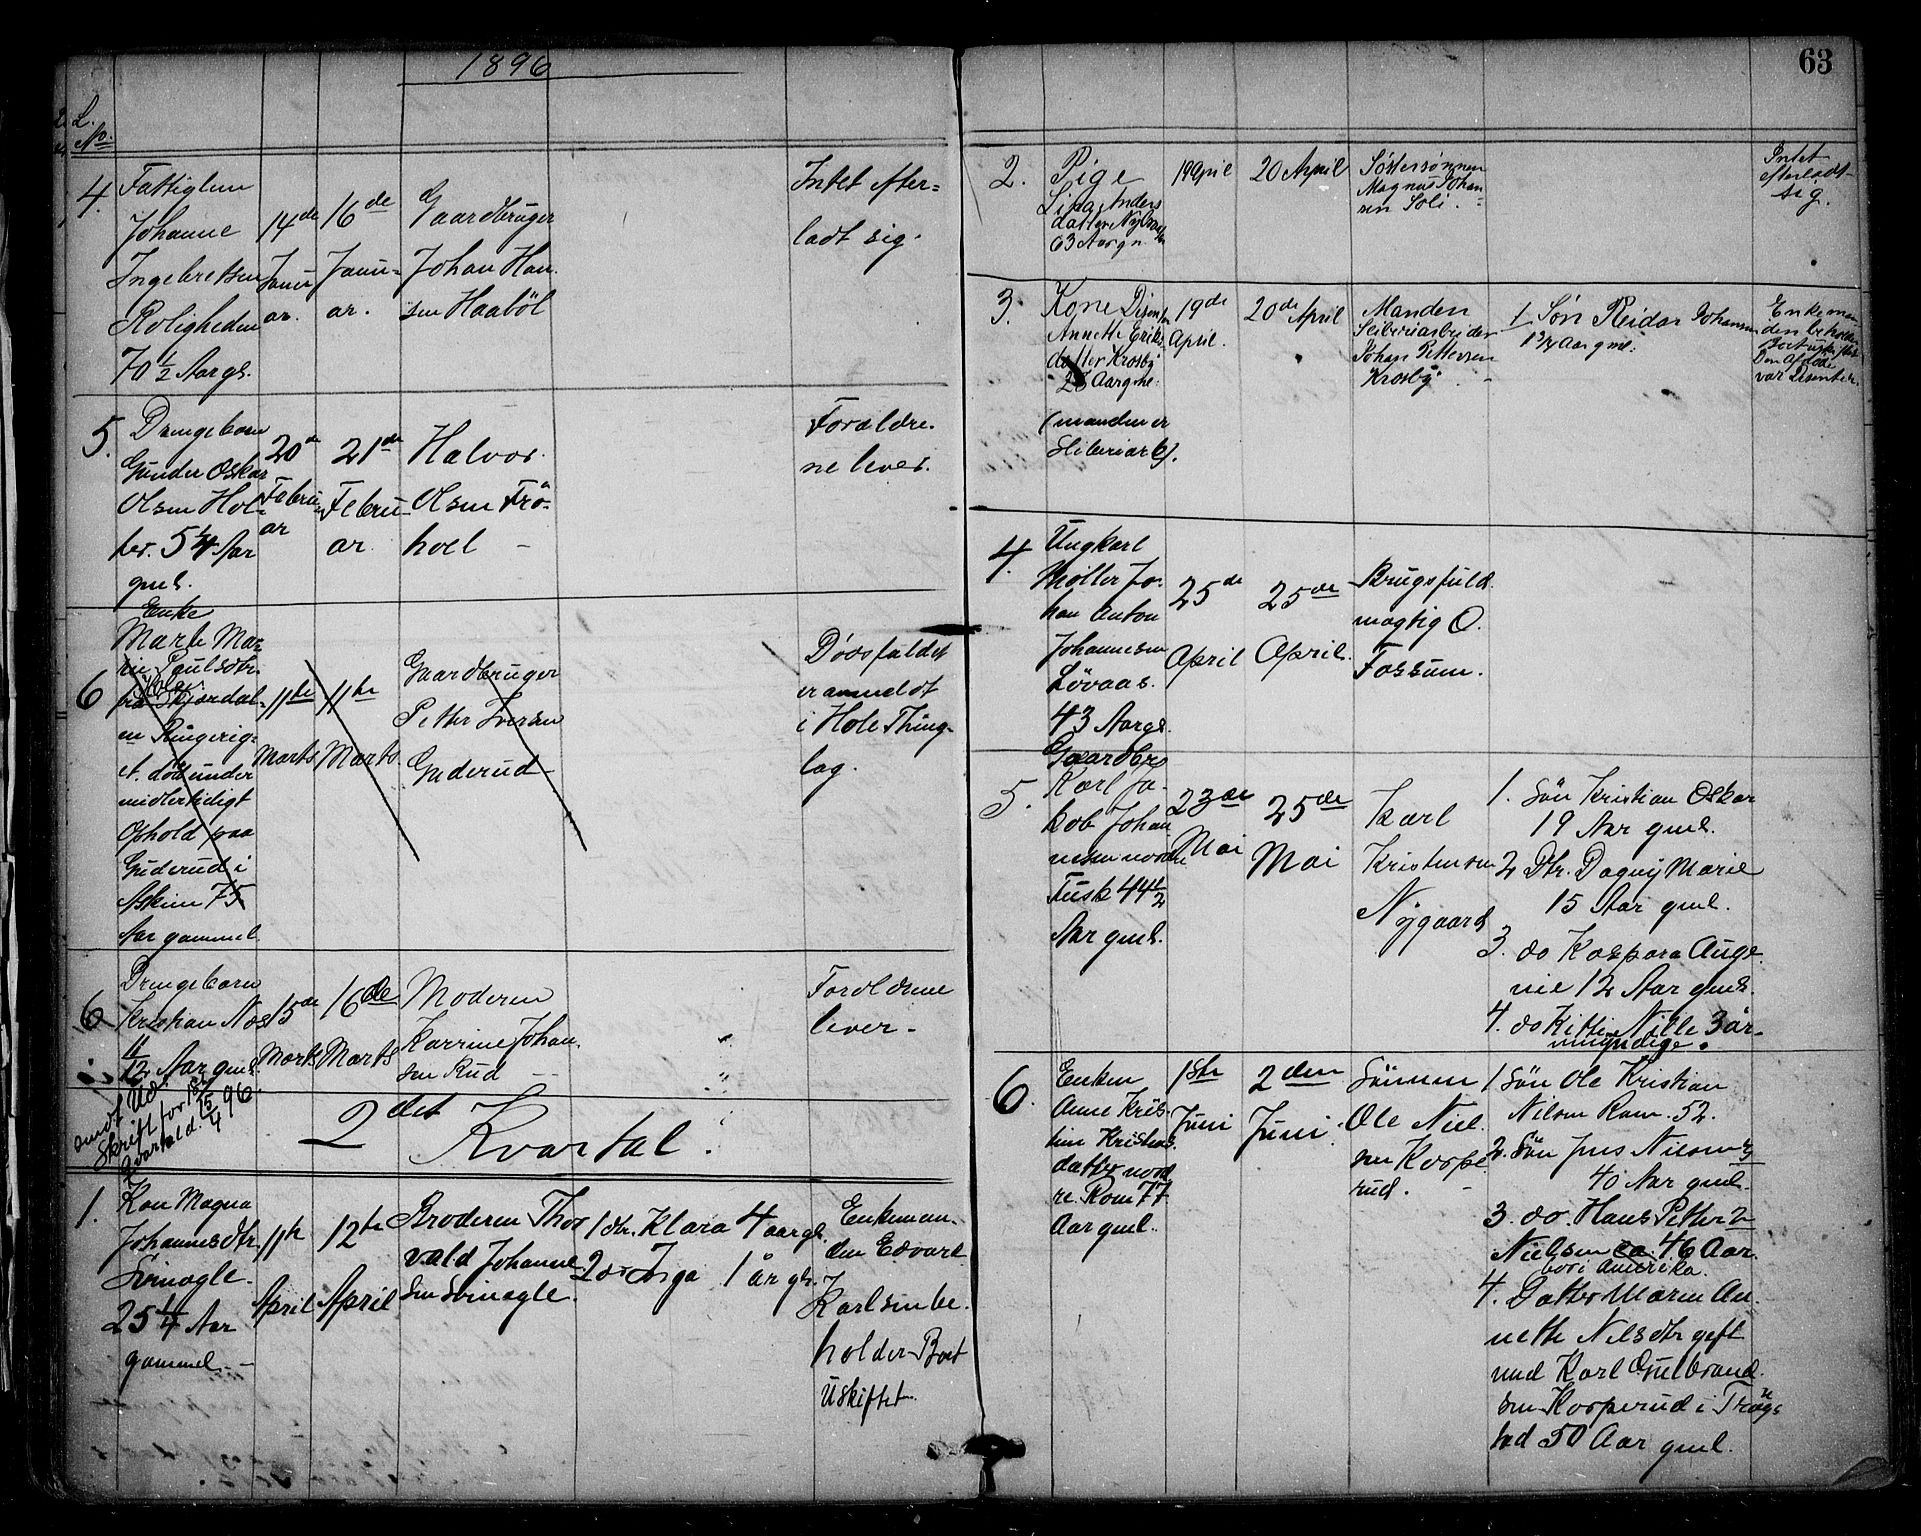 1896
63
L.
No.
4.
Fattiglem
Johanne
Ingebretsen
Roligheden
70 1/2 Aargl.
14de
Janu
ar.
16de
Janu-
ar.
Gaardbruger
Johan Han
sen Haabøl
Intet efter-
ladt sig.
5.
Drengebarn
Gunder Oskar
Olsen Hol-
ter. 5 1/4 Aar
gml.
20de
Febru
ar
21de
Febru-
ar.
Halvor
Olsen Frö-
hoel -
Forældre-
ne lever.
6
Enke
Marte Mar-
rie Paulsdtr.
fra Skjærdal-
en Ringerig-
et. död under
midlertidigt
Ophold paa
Guderud i
Askim 75
Aar gammel.
11te
Marts
11te
Marts.
Gaardbruger
Petter Iversen
Guderud
Dødsfaldet
er anmeldt
i Hole Thing-
lag.
6
Drengebarn
Kristian Næs
11/12 Aar gml.
15de
Marts
16de
Marts
Moderen
Karrine Johan-
sen Rud -
Foreldrene
lever -
sendt Ud-
skrift for 1ste
Qvartal d. 15/4 96.
2det Kvartal.
1.
Kon Magna
Johannesdtr.
Svinøgle.
25 1/4 Aar
gammel. -
11te
April
12te
April
Broderen Thor
vald Johanne-
sen Svinøgle.
1 dtr. Klara 4 aargl.
2 do Inga 1 år gl.
Enkeman-
den Edvart
Karlsen be-
holder Boet
Uskiftet.
2.
Pige
Lisa Anders
datter
63 Aar gm.
19 April
20 April
Søstersønnen
Magnus Johan
sen Soli.
Intet
efterladt
sig.
3.
Kone Disenter
Annette Eriks
datter Krosby
28 Aar gme:
(manden er
Sliberiarb).
19de
April.
20de April
Manden
Sliberiarbeider
Johan Pettersen
Krosby. -
1 Søn Reidar Johansen
1 3/4 Aar gml:
Enkeman
den beholder
Boet uskiftet
Den Afdøde
var Disenter.
4.
Ungkarl
Møller Jo-
han Anton
Johannesen
Løvaas.
43 Aargl.
25de
April
25de
April.
Brugsfuld
mægtig O.
Fossum.
5.
Gaardbr
Karl Ja-
kob Johan
nesen nordre
Tusk 44 1/2
Aar gml.
23de
Mai
25de
Mai
Karl
Kristensen
Nygaard
1. Søn Kristian Oskar
19 Aar gml.
2 Dtr. Dagny Marie
15 Aar gml.
3. do Kaspara Auge-
nie 12 Aar gml.
4. do Kitti Nille 3 år-
umyndige.
6.
Enken
Anne Kris-
tine Kristians
datter nord
re. Rom 77
Aar gml.
1ste
Juni
2den
Juni.
Sønnen
Ole Niel
sen Korpe
rud. -
1 Søn Ole Kristian
Nilsen Rom. 52.
2. Søn Jens Nilsen
40 Aar gml.
3. do. Hans Petter
Nielsen ca. 46 Aar
bor i Amerika.
4. Datter Maren An-
nette Nilsdtr gift
med Karl Gulbrand-
sen Korperud i Trøgs
tad 50 Aar gml.